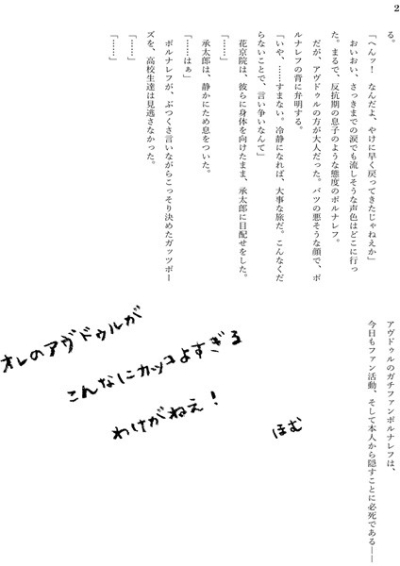 2
る。
「へんッ！　なんだよ、やけに早く戻ってきたじゃねえか」
　おいおい、さっきまでの涙でも流しそうな声色はどこに行っ
た。まるで、反抗期の息子のような態度のポルナレフ。
　だが、アヴドゥルの方が大人だった。バツの悪そうな顔で、ポ
ルナレフの背に弁明する。
「いや、……すまない。冷静になれば、大事な旅だ。こんなくだ
らないことで、言い争いなんて」
　花京院は、彼らに身体を向けたまま、承太郎に目配せをした。
「……」
　承太郎は、静かにため息をついた。
「……はぁ」
　ポルナレフが、ぶつくさ言いながらこっそり決めたガッツポー
ズを、高校生達は見逃さなかった。
「……」
「……」
アヴドゥルのガチファンポルナレフは、
今日もファン活動、そして本人から隠すことに必死である――
オレのアヴドゥルが
こんなにカッコよすぎる
わけがねえ！
ほむ